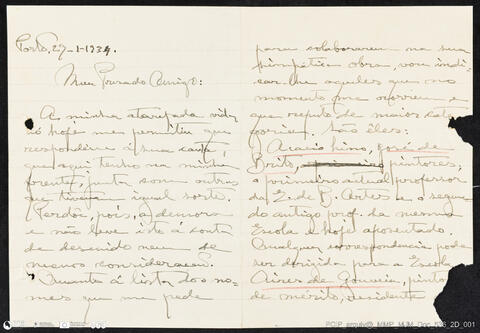 Porto, 27-1-1934.
Meu Prezado Amigo:
A minha atarefada vida
só hoje me permitiu que
respondesse á sua carta,
que aqui tenho na minha
frente, junta com outras
que tiveram igual sorte.
Perdôe, pois, a demora
e não leve isto á conta
de descuido nem de
menos consideração.
Quanto á lista dos no-
mes que me pede
para colaborarem na sua
simpática obra, vou indi-
car-lhe aqueles que no
momento me ocorrem e
que reputo de maior cate
goria. São êles:
Acacio Lino, José de
Brito, pintores;
o primeiro actual professor
da E. de B. Artes e o segun
do antigo prof. da mesma
Escola e hoje aposentado.
Qualquer correspondencia pode
ser dirigida para a Escola
Aires de Gouveia, pintor
de mérito, residente
PCIP_arquivo_MMP_MJM_Doc_526_2D_001